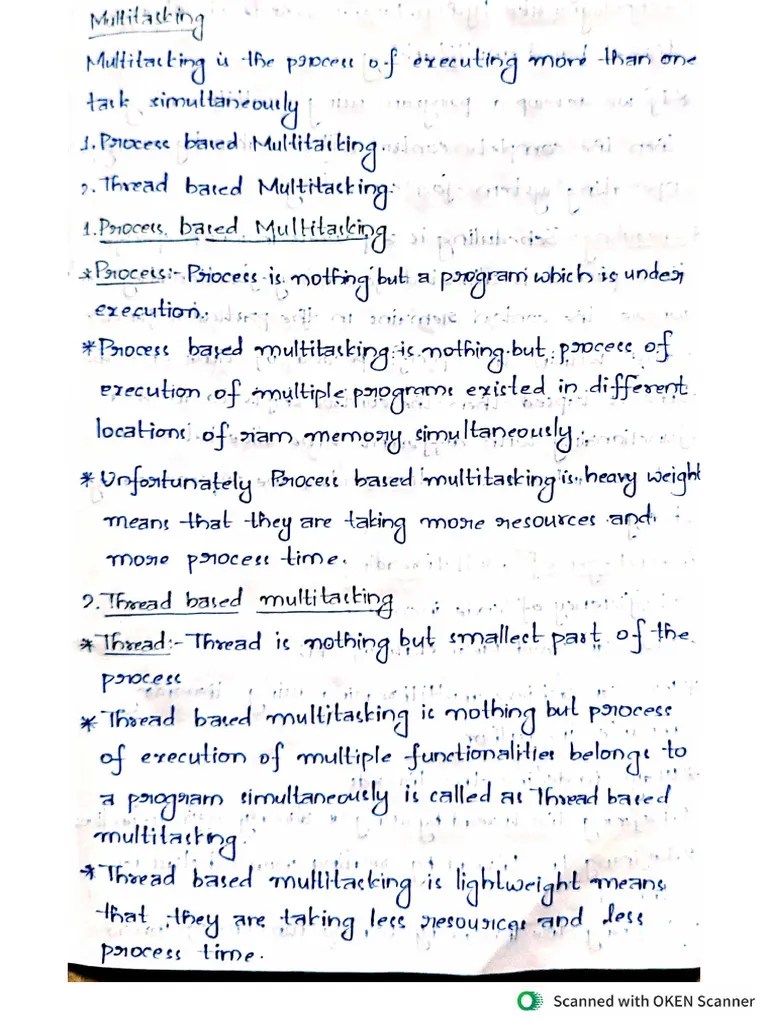 Multitasking
Multitasking is the process of executing more than one
task simultaneously
1. Process based Multitasking.
2. Thread based Multitasking.
1. Process based Multitasking.
*Process:- Process is nothing but a program which is under
execution.
*Process based multitasking is nothing but process of
execution of multiple programs existed in different
locations of ram memory simultaneously.
*Unfortunately Process based multitasking is heavy weight
means that they are taking more resources and
more process time.
2. Thread based multitasking
*Thread:- Thread is nothing but smallest part of the
process
*Thread based multitasking is nothing but process
of execution of multiple functionalities belongs to
a program simultaneously is called as Thread based
multitasking.
*Thread based multitasking is lightweight means
that they are taking less resources and less
process time.
Scanned with OKEN Scanner